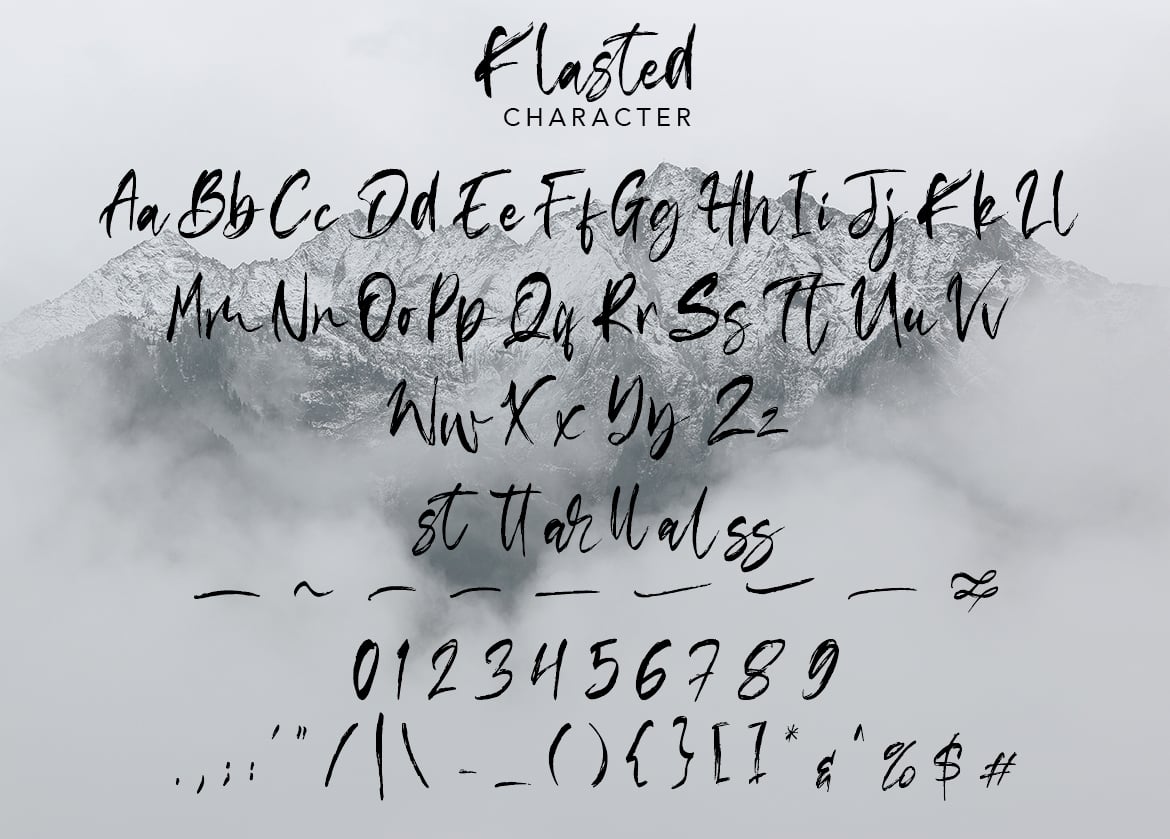 Klasted
CHARACTER
Aa Bb Cc Dd Ee Ff Gg Hh Ii Jj Kk Ll
Mm Nn Oo Pp Qq Rr Ss Tt Uu Vv
Ww Xx Yy Zz
st tt ar ll al ss
0 1 2 3 4 5 6 7 8 9
. , ; : ' " / | \ - _ ( ) { } [ ] * & ^ % $ #